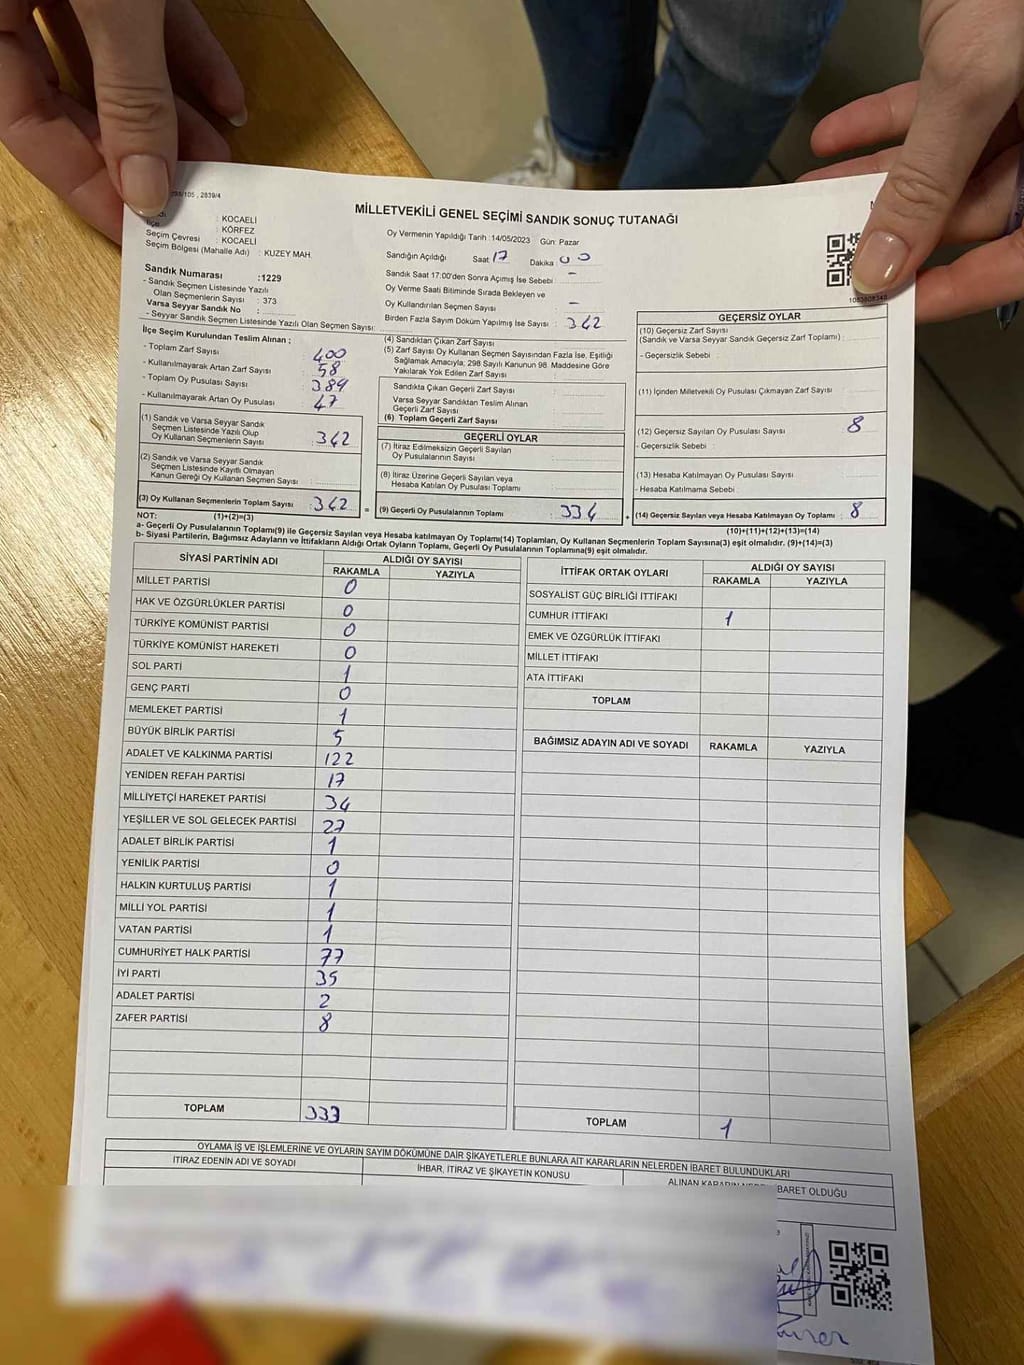 298/105 , 2839/4
MİLLETVEKİLİ GENEL SEÇİMİ SANDIK SONUÇ TUTANAĞI
: KOCAELİ
İlçe : KÖRFEZ
Seçim Çevresi : KOCAELİ
Seçim Bölgesi (Mahalle Adı) : KUZEY MAH.
Sandık Numarası :1229
- Sandık Seçmen Listesinde Yazılı
Olan Seçmenlerin Sayısı : 373
Varsa Seyyar Sandık No :
- Seyyar Sandık Seçmen Listesinde Yazılı Olan Seçmen Sayısı:
Oy Vermenin Yapıldığı Tarih :14/05/2023 Gün: Pazar
Sandığın Açıldığı Saat : 17 Dakika : 00
Sandık Saat 17:00'den Sonra Açımış İse Sebebi : -
Oy Verme Saati Bitiminde Sırada Bekleyen ve
Oy Kullandırılan Seçmen Sayısı : -
Birden Fazla Sayım Döküm Yapılmış İse Sayısı : 342
1083808348
İlçe Seçim Kurulundan Teslim Alınan ;
- Toplam Zarf Sayısı : 400
- Kullanılmayarak Artan Zarf Sayısı : 58
- Toplam Oy Pusulası Sayısı : 389
- Kullanılmayarak Artan Oy Pusulası : 47
(1) Sandık ve Varsa Seyyar Sandık
Seçmen Listesinde Yazılı Olup
Oy Kullanan Seçmenlerin Sayısı : 342
(2) Sandık ve Varsa Seyyar Sandık
Seçmen Listesinde Kayıtlı Olmayan
Kanun Gereği Oy Kullanan Seçmen Sayısı :
(3) Oy Kullanan Seçmenlerin Toplam Sayısı : 342 =
(4) Sandıktan Çıkan Zarf Sayısı :
(5) Zarf Sayısı Oy Kullanan Seçmen Sayısından Fazla İse, Eşitliği
Sağlamak Amacıyla; 298 Sayılı Kanunun 98. Maddesine Göre
Yakılarak Yok Edilen Zarf Sayısı :
Sandıkta Çıkan Geçerli Zarf Sayısı :
Varsa Seyyar Sandıktan Teslim Alınan
Geçerli Zarf Sayısı :
(6) Toplam Geçerli Zarf Sayısı :
GEÇERLİ OYLAR
(7) İtiraz Edilmeksizin Geçerli Sayılan
Oy Pusulalarının Sayısı :
(8) İtiraz Üzerine Geçerli Sayılan veya
Hesaba Katılan Oy Pusulası Toplamı :
(9) Geçerli Oy Pusulalarının Toplamı : 334 +
GEÇERSİZ OYLAR
(10) Geçersiz Zarf Sayısı
(Sandık ve Varsa Seyyar Sandık Geçersiz Zarf Toplamı) :
- Geçersizlik Sebebi :
(11) İçinden Milletvekili Oy Pusulası Çıkmayan Zarf Sayısı :
(12) Geçersiz Sayılan Oy Pusulası Sayısı : 8
- Geçersizlik Sebebi :
(13) Hesaba Katılmayan Oy Pusulası Sayısı :
- Hesaba Katılmama Sebebi :
(14) Geçersiz Sayılan veya Hesaba Katılmayan Oy Toplamı : 8
NOT: (1)+(2)=(3) (10)+(11)+(12)+(13)=(14)
a- Geçerli Oy Pusulalarının Toplamı(9) ile Geçersiz Sayılan veya Hesaba katılmayan Oy Toplamı(14) Toplamları, Oy Kullanan Seçmenlerin Toplam Sayısına(3) eşit olmalıdır. (9)+(14)=(3)
b- Siyasi Partilerin, Bağımsız Adayların ve İttifakların Aldığı Ortak Oyların Toplamı, Geçerli Oy Pusulalarının Toplamına(9) eşit olmalıdır.
SİYASİ PARTİNİN ADI ALDIĞI OY SAYISI
RAKAMLA YAZIYLA
MİLLET PARTİSİ 0
HAK VE ÖZGÜRLÜKLER PARTİSİ 0
TÜRKİYE KOMÜNİST PARTİSİ 0
TÜRKİYE KOMÜNİST HAREKETİ 0
SOL PARTİ 1
GENÇ PARTİ 0
MEMLEKET PARTİSİ 1
BÜYÜK BİRLİK PARTİSİ 5
ADALET VE KALKINMA PARTİSİ 122
YENİDEN REFAH PARTİSİ 17
MİLLİYETÇİ HAREKET PARTİSİ 34
YEŞİLLER VE SOL GELECEK PARTİSİ 27
ADALET BİRLİK PARTİSİ 1
YENİLİK PARTİSİ 0
HALKIN KURTULUŞ PARTİSİ 1
MİLLİ YOL PARTİSİ 1
VATAN PARTİSİ 1
CUMHURİYET HALK PARTİSİ 77
İYİ PARTİ 35
ADALET PARTİSİ 2
ZAFER PARTİSİ 8
TOPLAM 333
İTTİFAK ORTAK OYLARI ALDIĞI OY SAYISI
RAKAMLA YAZIYLA
SOSYALİST GÜÇ BİRLİĞİ İTTİFAKI
CUMHUR İTTİFAKI 1
EMEK VE ÖZGÜRLÜK İTTİFAKI
MİLLET İTTİFAKI
ATA İTTİFAKI
TOPLAM
BAĞIMSIZ ADAYIN ADI VE SOYADI RAKAMLA YAZIYLA
TOPLAM 1
OYLAMA İŞ VE İŞLEMLERİNE VE OYLARIN SAYIM DÖKÜMÜNE DAİR ŞİKAYETLERLE BUNLARA AİT KARARLARIN NELERDEN İBARET BULUNDUKLARI
İTİRAZ EDENİN ADI VE SOYADI İHBAR, İTİRAZ VE ŞİKAYETİN KONUSU ALINAN KARARIN NEDEN İBARET OLDUĞU